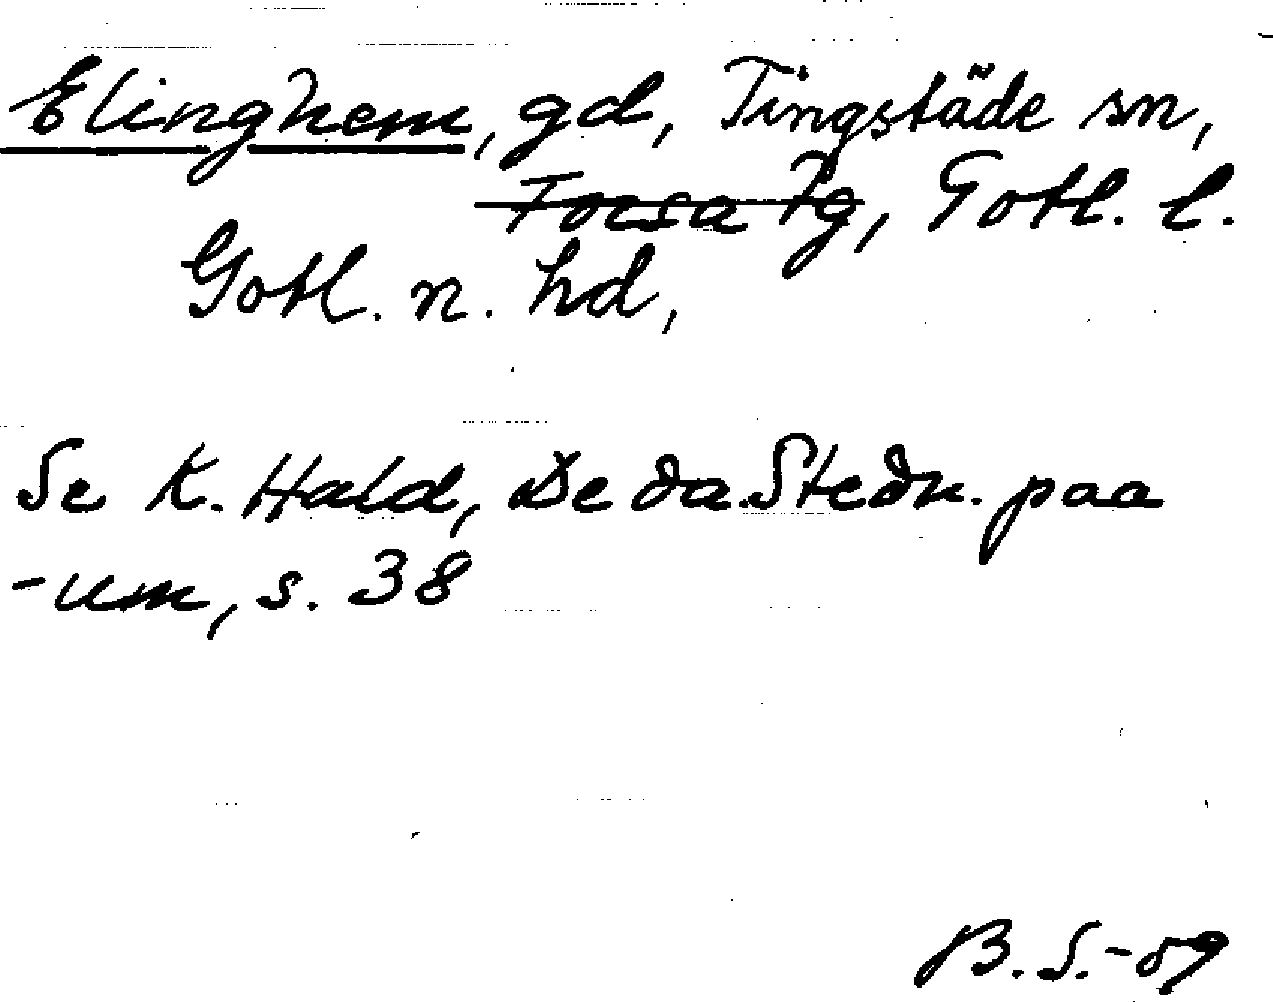 Elinghem, gd, Tingstäde sn,
Forsa Tg, Gotl. l.
Gotl. n. hd,
Se K. Hald, De da. Stedn. paa
-um, s. 38
B. S. -59